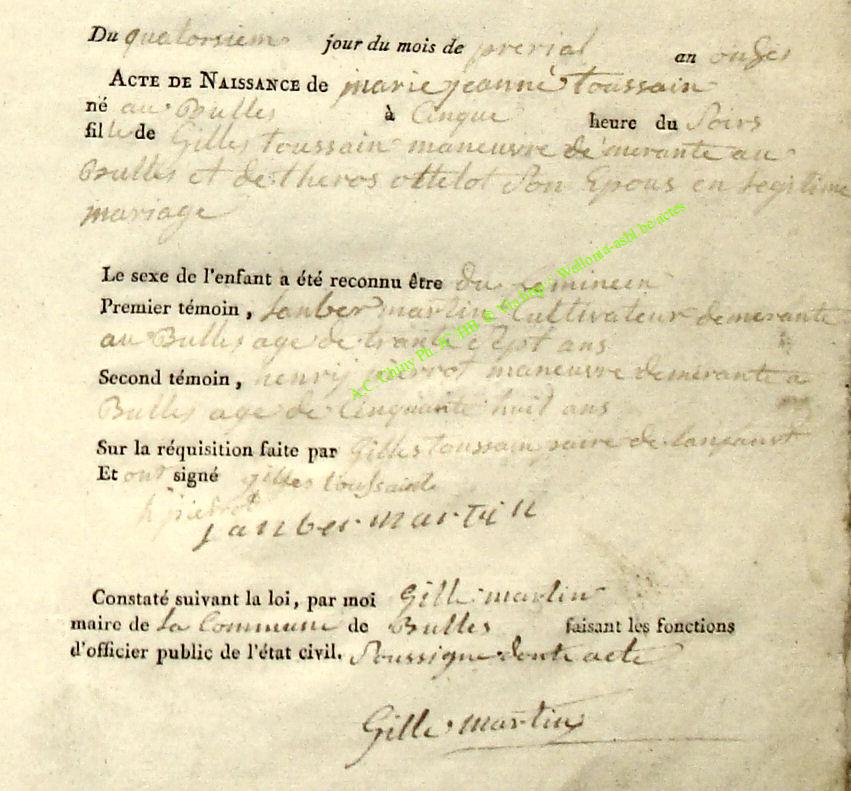 Du quatorsiem jour du mois de prerial an onze
ACTE DE NAISSANCE de marie jeanne toussain
né au Bulles à Cinque heure du Soirs
fille de Gilles toussain maneuvre demerante au
Bulles et de theros ottelot Son Epous en legitime
mariage
Le sexe de l'enfant a été reconnu être du feminein
Premier témoin, Lamber martin Cultivateur demerante
au Bulles age de trante Sept ans
Second témoin, henrij pierrot maneuvre demerante a
Bulles age de Cinquante huit ans
Sur la réquisition faite par Gilles toussain paire de lanfant
Et ont signé gilles toussaint
h pierrot
lamber martin
Constaté suivant la loi, par moi Gille martin
maire de la Commune de Bulles faisant les fonctions
d'officier public de l'état civil. Soussigne dont acte
Gille martin